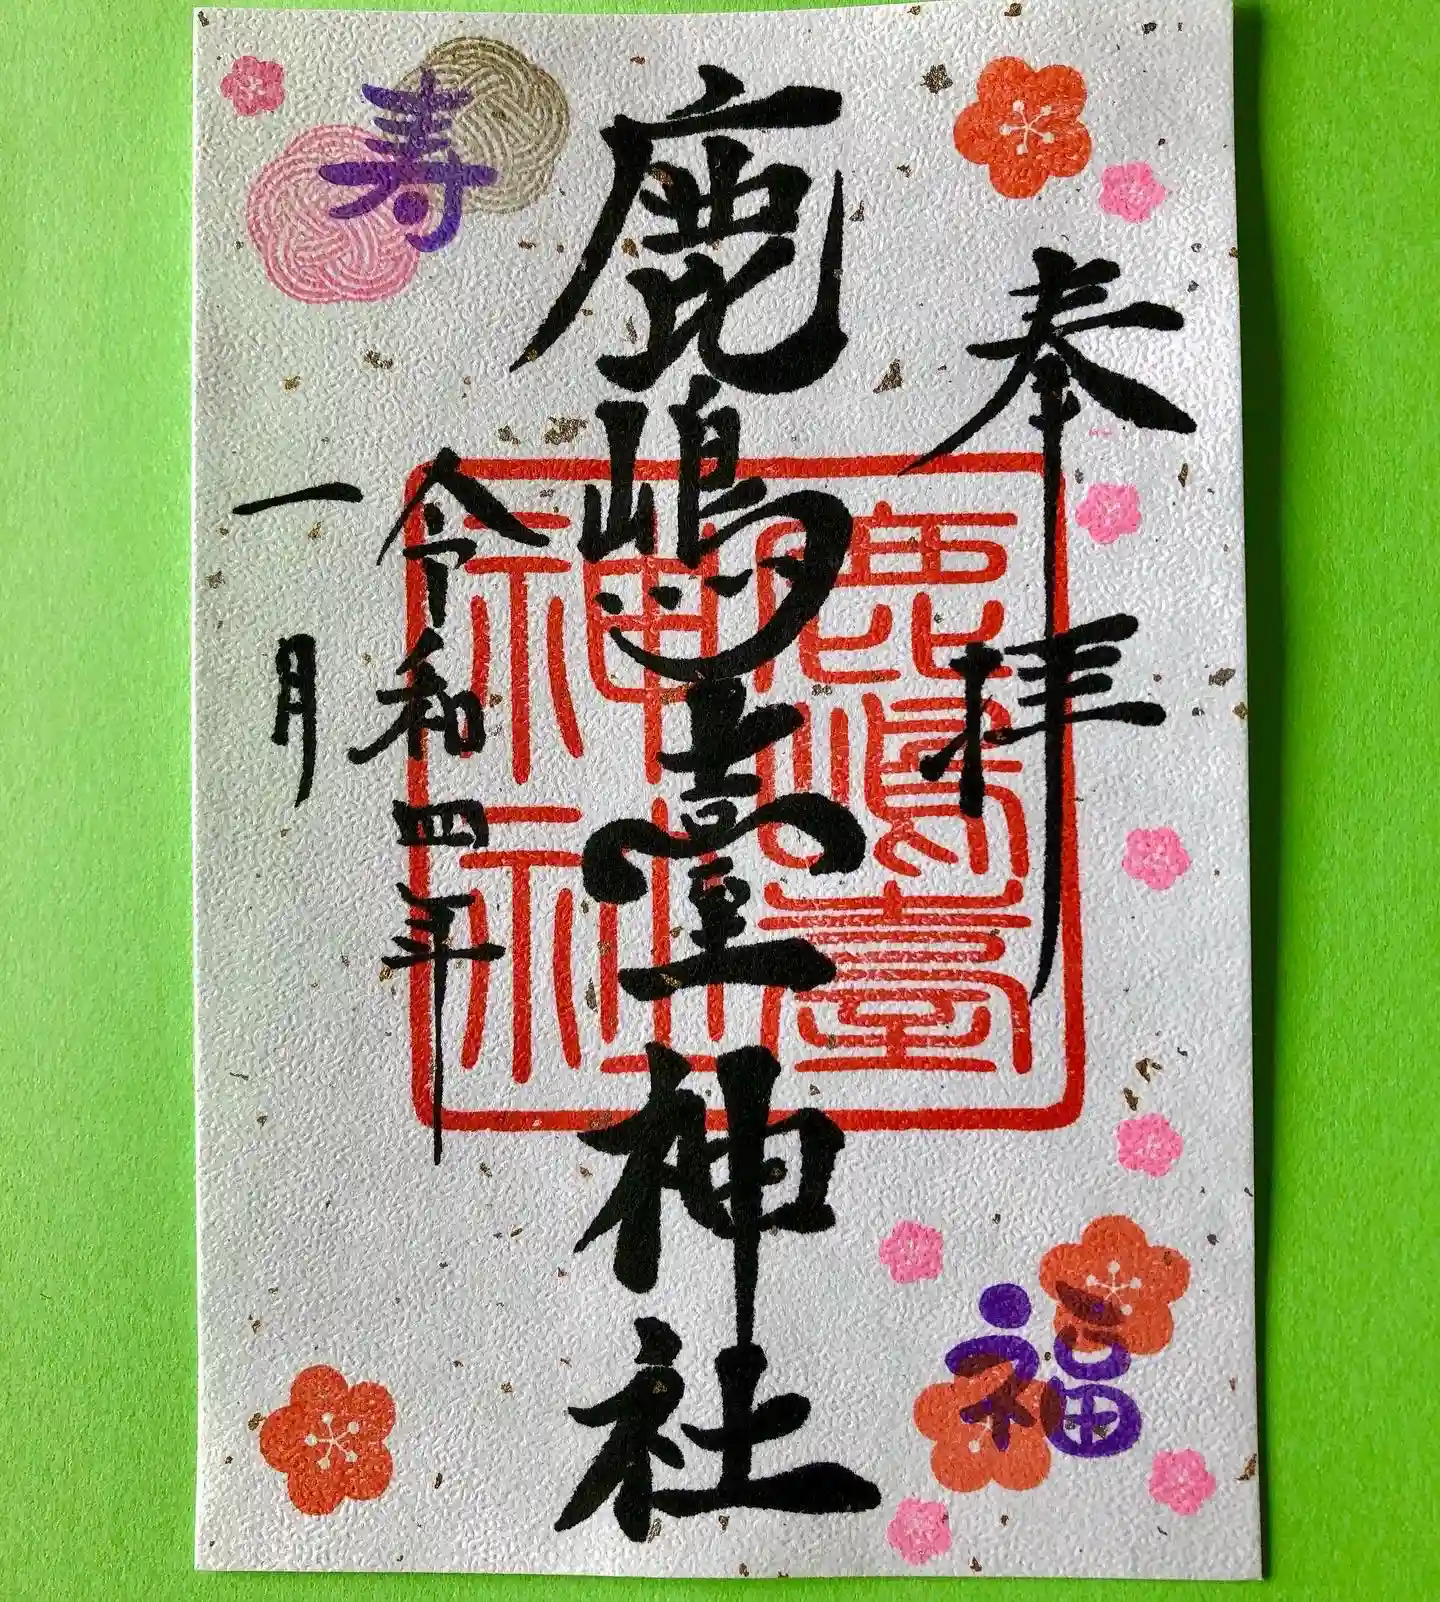 奉拝
鹿嶋臺神社
鹿嶋臺
神社
令和四年
一月
寿
福